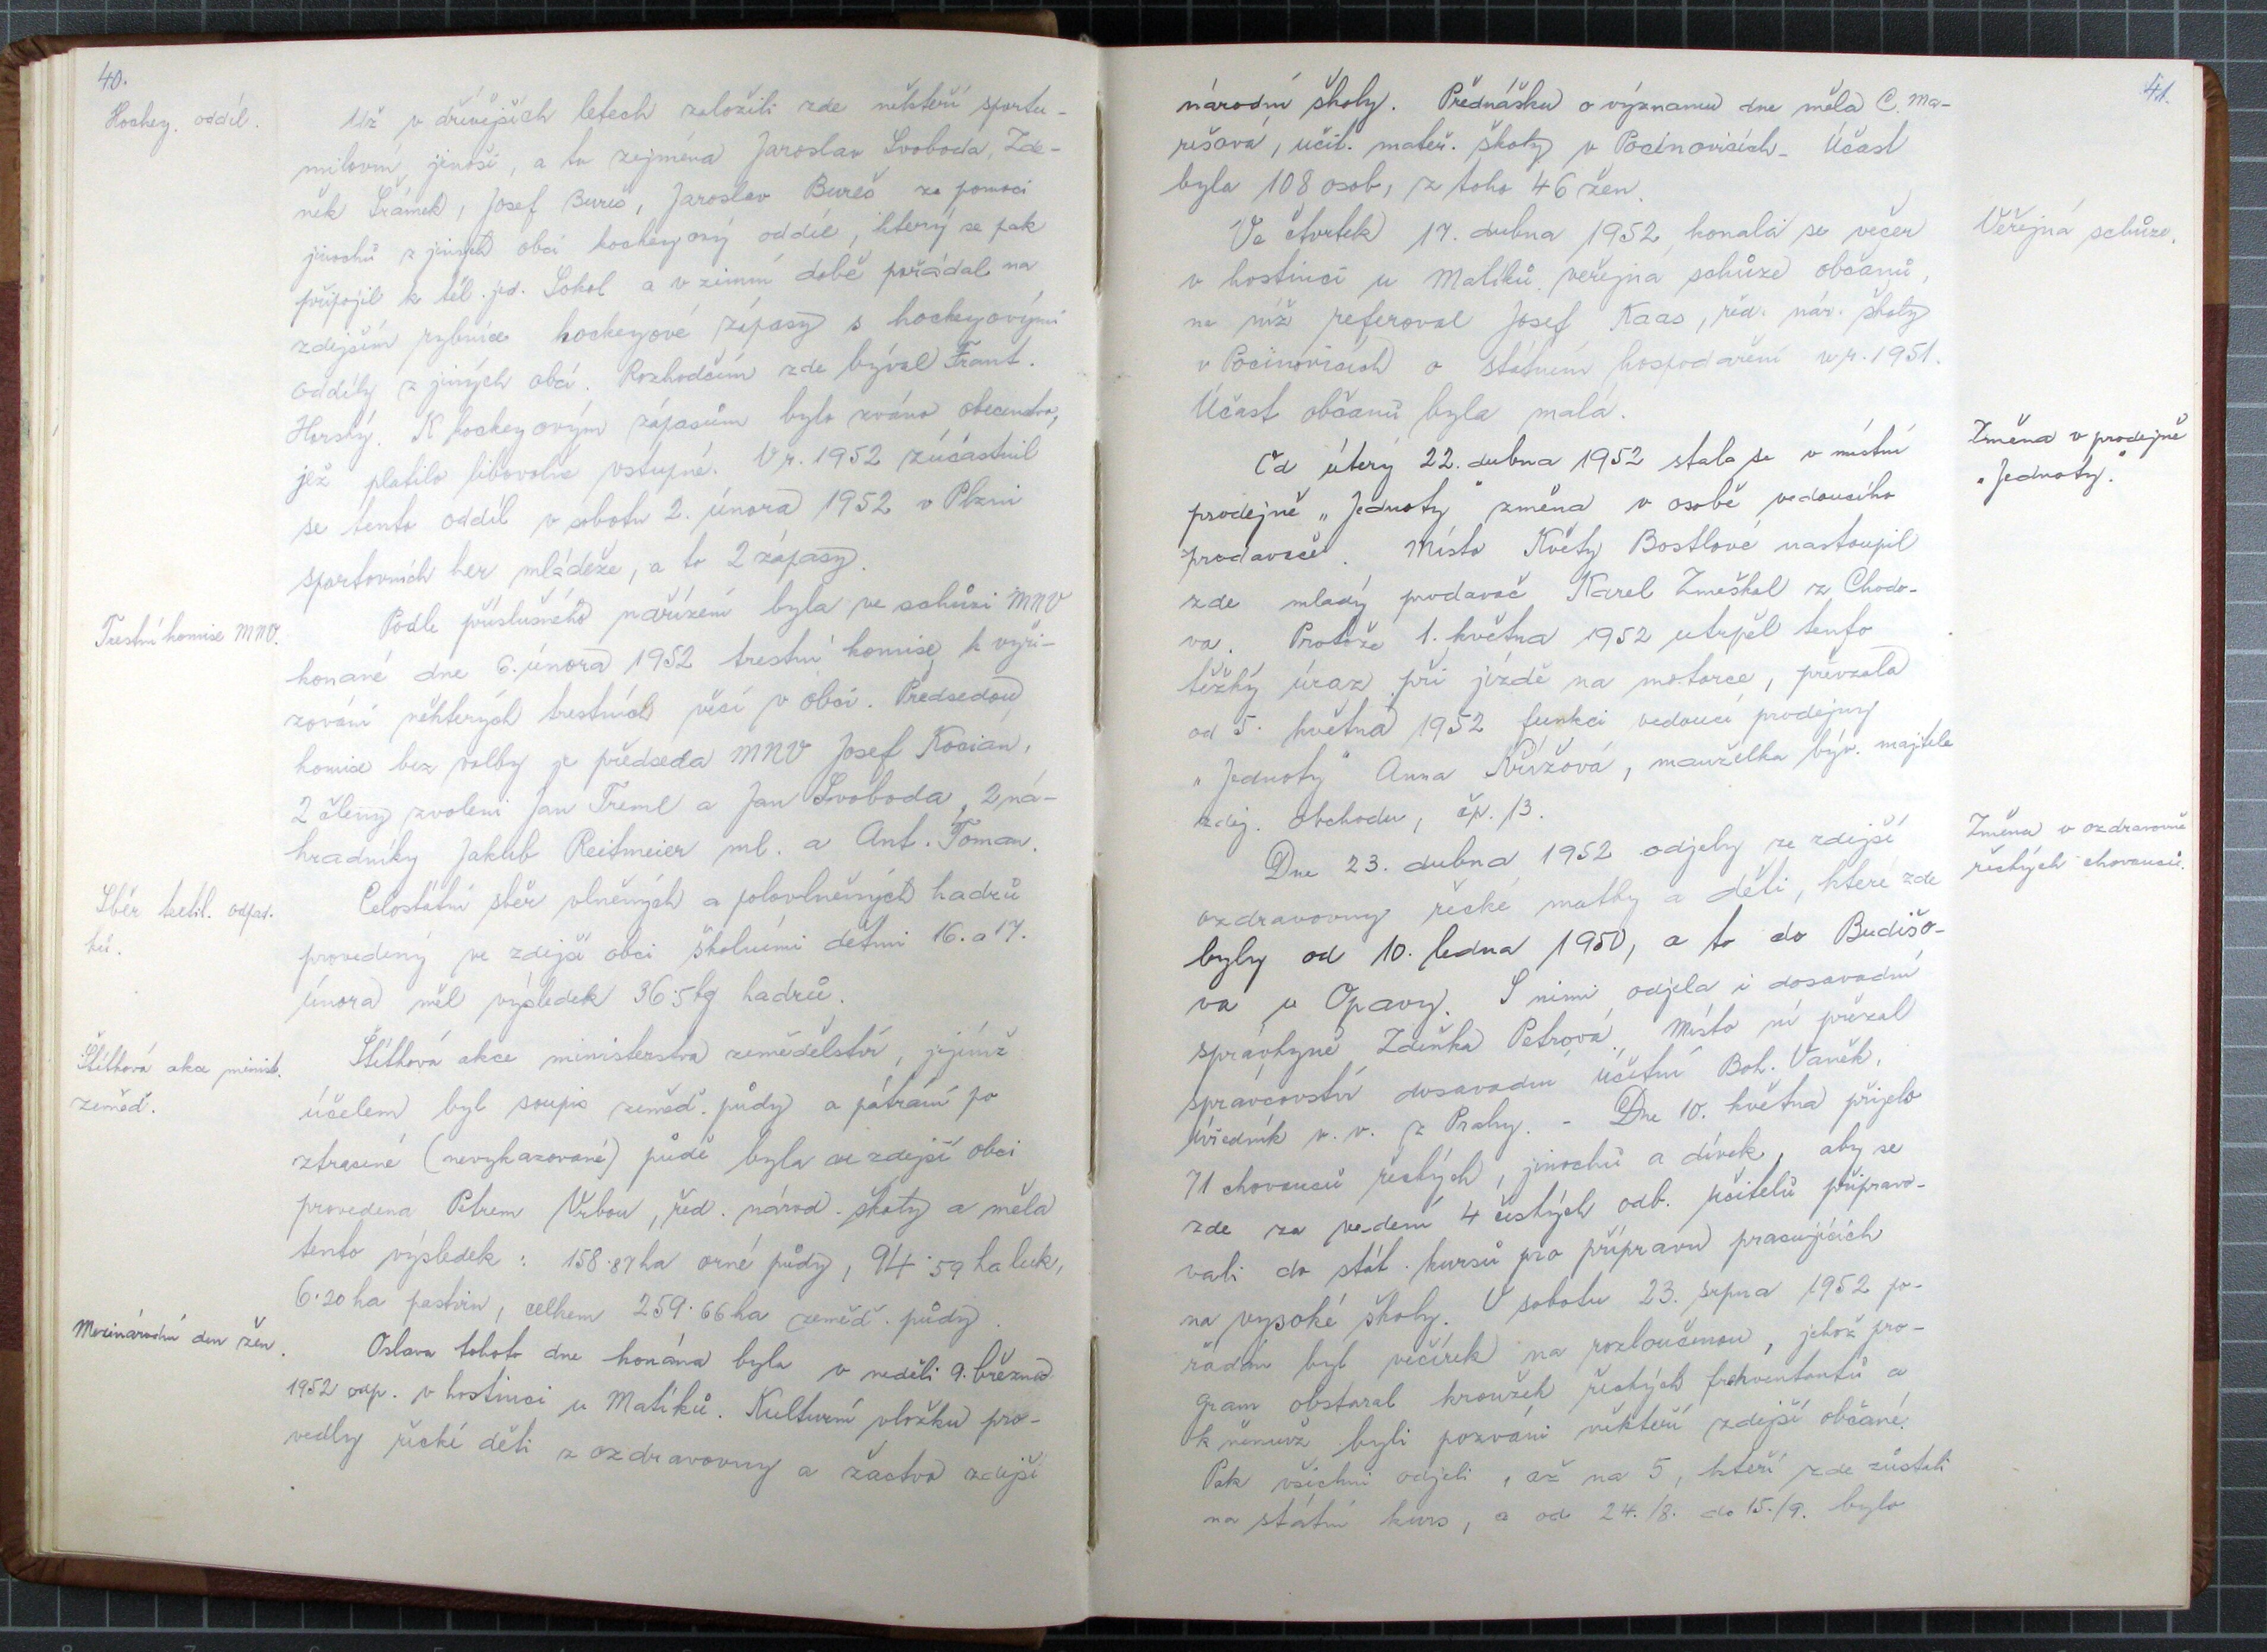 40.
Hockey. oddíl.
Už v dřívějších letech založili zde někteří sportu-
milovní jinoši, a to zejména Jaroslav Svoboda, Zde-
něk Šrámek, Josef Bureš, Jaroslav Bureš za pomoci
jinochů z jiných obcí hockeyový oddíl, který se pak
připojil k těl. jed. Sokol a v zimní době pořádal na
zdejším rybníce hockeyové zápasy s hockeyovými
oddíly z jiných obcí. Rozhodčím zde býval Frant.
Horský. K hockeyovým zápasům bylo zváno obecenstvo,
jež platilo libovolné vstupné. V r. 1952 zúčastnil
se tento oddíl v sobotu 2. února 1952 v Plzni
sportovních her mládeže, a to 2 zápasy.
Trestní komise MNV.
Podle příslušného nařízení byla ve schůzi MNV
konané dne 6. února 1952 trestní komise k vyři-
zování některých trestních věcí v obci. Předsedou
komise bez volby je předseda MNV Josef Kocian,
2 členy zvoleni Jan Treml a Jan Svoboda, 2 ná-
hradníky Jakub Reitmeier ml. a Ant. Toman.
Sběr textil. odpad-
ků.
Celostátní sběr vlněných a polovlněných hadrů
provedený ve zdejší obci školními dětmi 16. a 17.
února měl výsledek 36·5 kg hadrů.
Štítková akce minist.
zeměd.
Štítková akce ministerstva zemědělství, jejímž
účelem byl soupis zeměd. půdy a pátrání po
ztracené (nevykazované) půdě byla ve zdejší obci
provedena Petrem Vrbou, řed. národ. školy a měla
tento výsledek: 158·87 ha orné půdy, 94·59 ha luk,
6·20 ha pastvin, celkem 259·66 ha zeměd. půdy.
Mezinárodní den žen.
Oslava tohoto dne konána byla v neděli 9. března
1952 odp. v hostinci u Matíků. Kulturní vložku pro-
vedly řecké děti z ozdravovny a žactvo zdejší
41.
národní školy. Přednášku o významu dne měla C. Ma-
rešová, učit. mateř. školy v Pocinovicích. Účast
byla 108 osob, z toho 46 žen.
Veřejná schůze.
Ve čtvrtek 17. dubna 1952 konala se večer
v hostinci u Matíků veřejná schůze občanů,
na níž referoval Josef Kaas, řed. nár. školy
v Pocinovicích o státním hospodaření v r. 1951.
Účast občanů byla malá.
Změna v prodejně
„Jednoty."
Od úterý 22. dubna 1952 stala se v místní
prodejně „Jednoty" změna v osobě vedoucího
prodavače. Místo Květy Bostlové nastoupil
zde mladý prodavač Karel Zmeškal z Chodo-
va. Protože 1. května 1952 utrpěl tento
těžký úraz při jízdě na motorce, převzala
od 5. května 1952 funkci vedoucí prodejny
„Jednoty" Anna Křížová, manželka býv. majitele
zdej. obchodu, čp. 13.
Změna v ozdravovně
řeckých chovanců.
Dne 23. dubna 1952 odjely ze zdejší
ozdravovny řecké matky a děti, které zde
byly od 10. ledna 1950, a to do Budišo-
va u Opavy. S nimi odjela i dosavadní
správkyně Zdeňka Petrová. Místo ní převzal
správcovství dosavadní účetní Boh. Vaněk,
úředník v. v. z Prahy. - Dne 10. května přijelo
71 chovanců řeckých, jinochů a dívek, aby se
zde za vedení 4 českých odb. učitelů připravo-
vali do stát. kursů pro přípravu pracujících
na vysoké školy. V sobotu 23. srpna 1952 po-
řádán byl večírek na rozloučenou, jehož pro-
gram obstaral kroužek řeckých frekventantů a
k němuž byli pozváni někteří zdejší občané.
Pak všichni odjeli, až na 5, kteří zde zůstali
na státní kurs, a od 24./8. do 15./9. bylo